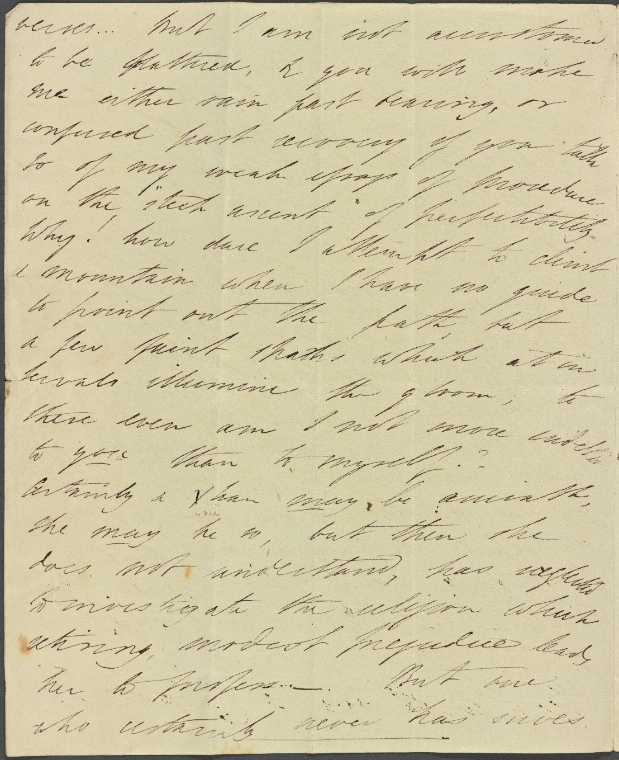 verses... But I am not accustomed
to be flattered, & you will make
me either vain past bearing, or
confused past recovery if you talk
to of my weak essays of procedure
on the "steep ascent" of perfectibility
Why! how dare I attempt to climb
a mountain when I have no guide
to point out the path, but
a few faint which at in
tervals illumine the gloom, to
these even am I not more indebted
to you than to myself?
Certainly a may be amiable,
she may be so, but then she
does not understand, has neglected
to investigate the religion which
retiring, modest prejudice leads
her to profess — But one
who certainly never has